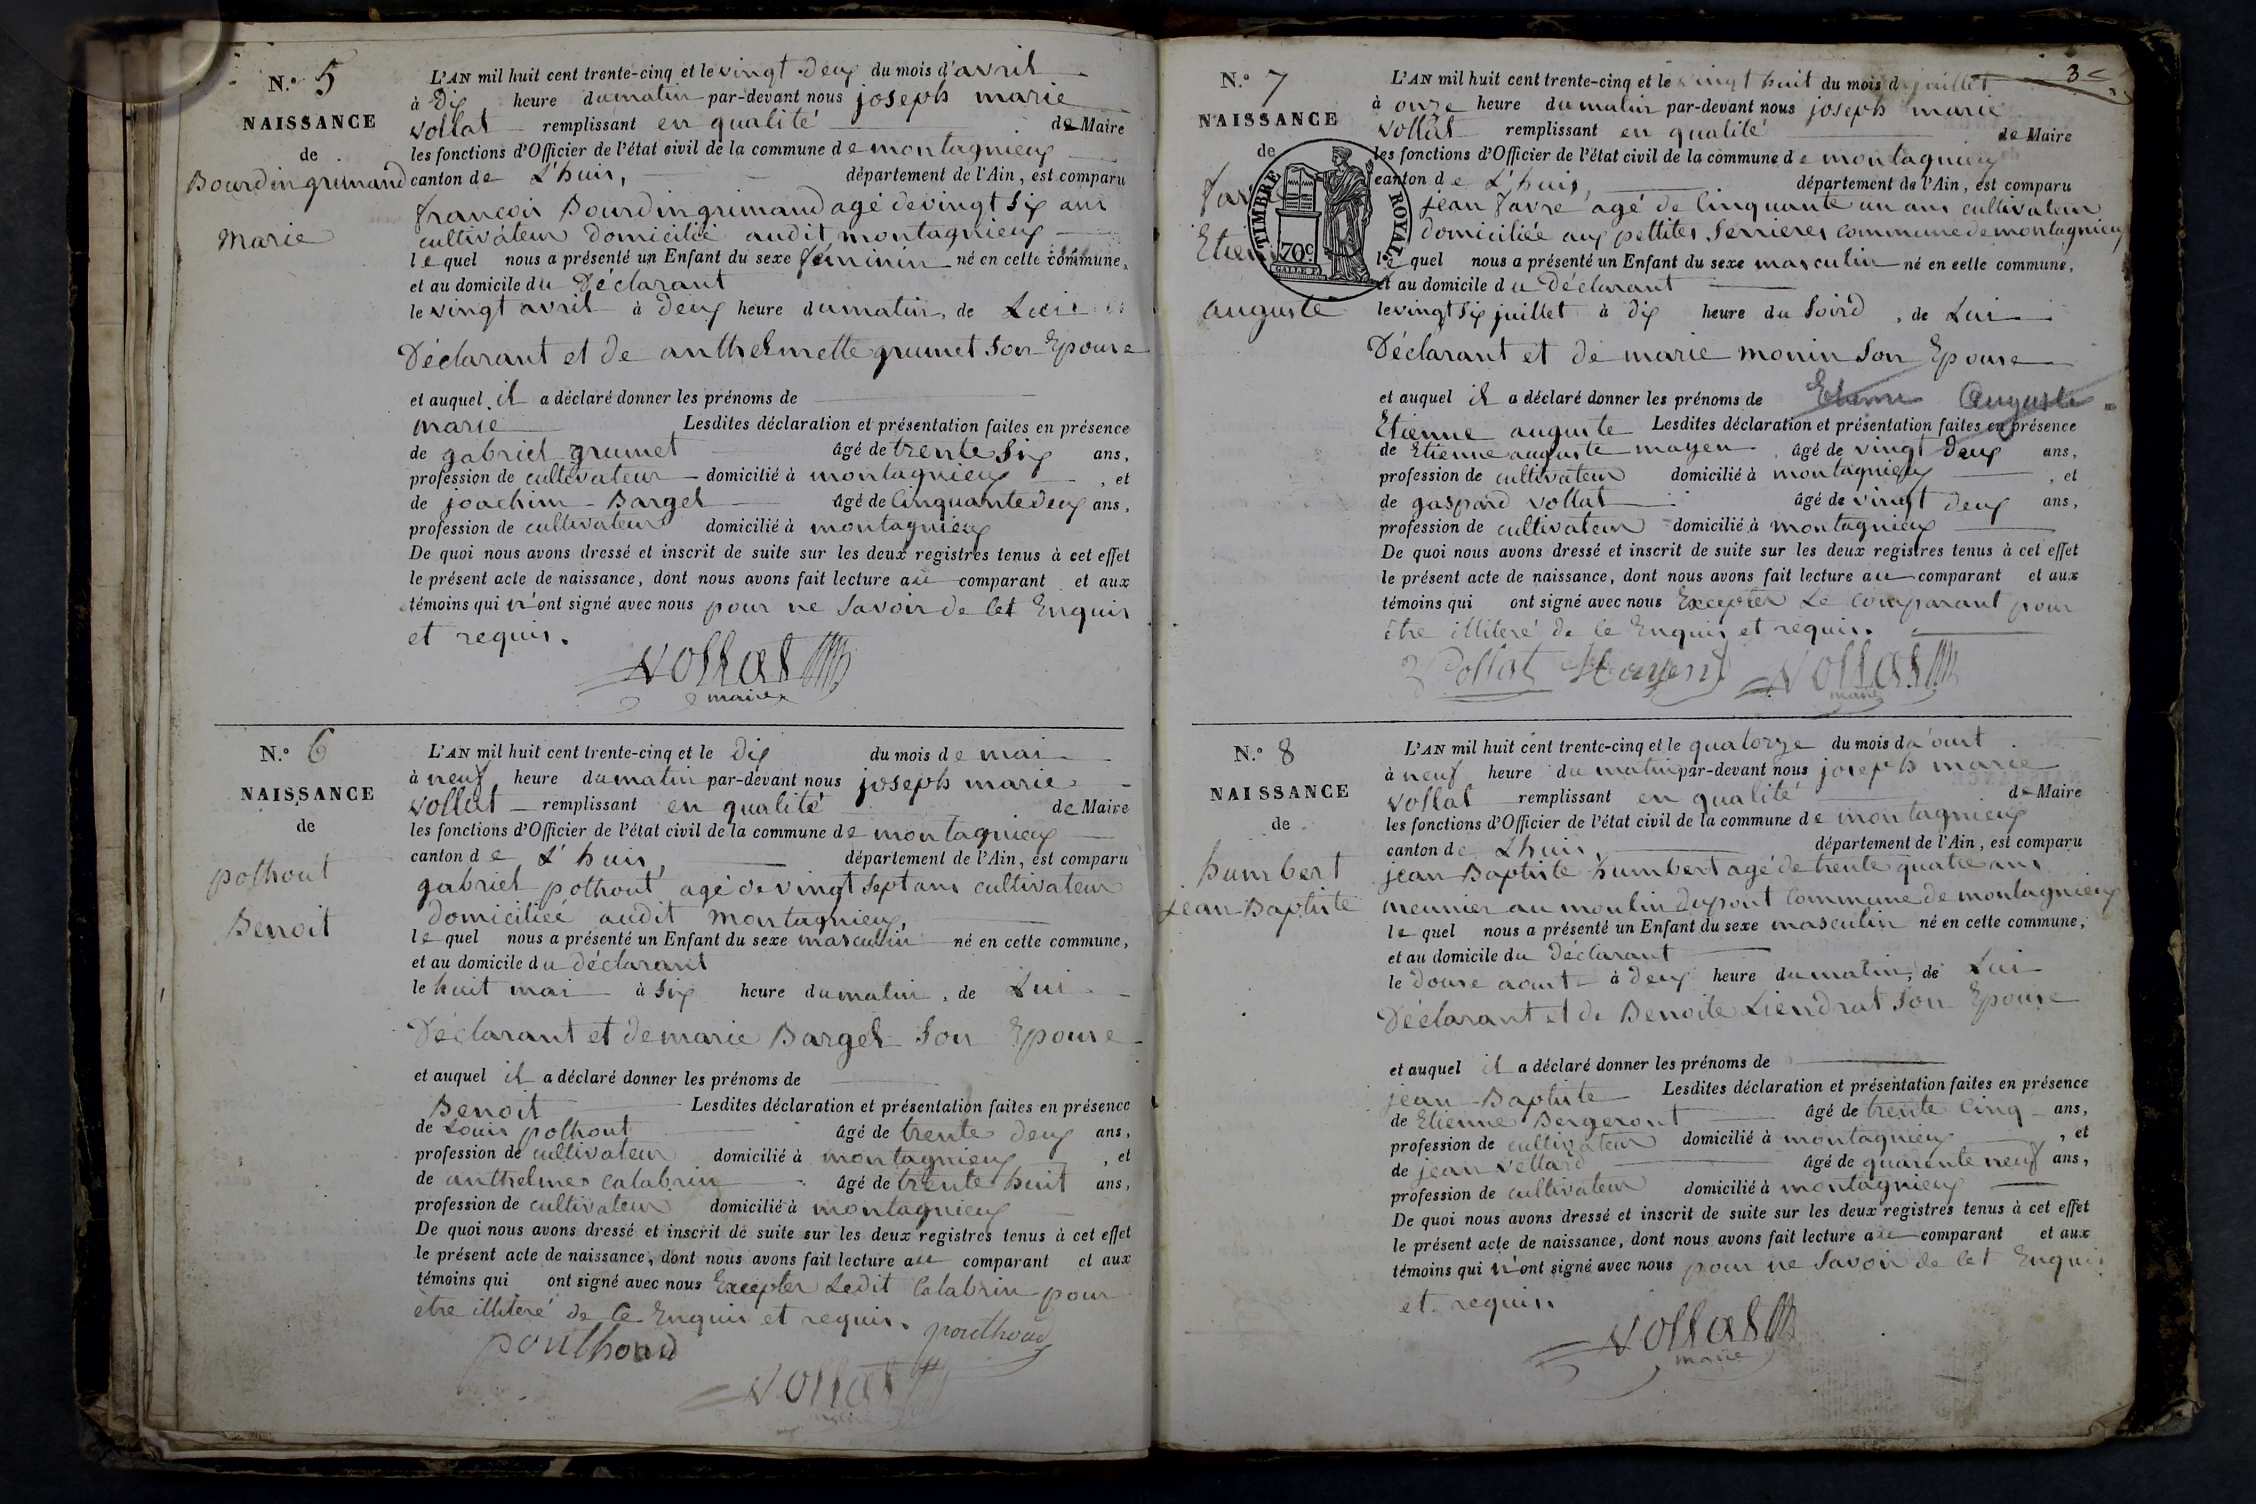 N.º 5
NAISSANCE
de
Bourdin grumaud
marie
L'AN mil huit cent trente-cinq et le vingt deux du mois d'avril
à dix heure du matin par-devant nous joseph marie
vollat remplissant en qualité de Maire
les fonctions d'Officier de l'état civil de la commune de montagnieux
canton de L'huis, département de l'Ain, est comparu
françois Bourdin grumaud agé de vingt six ans
cultivateur domicilié audit montagnieux
lequel nous a présenté un Enfant du sexe féminin né en cette commune,
et au domicile du Déclarant
le vingt avril à deux heure du matin, de Lui
Déclarant et de anthelmette grumet son Epouse
et auquel il a déclaré donner les prénoms de
marie Lesdites déclaration et présentation faites en présence
de gabriel grumet âgé de trente six ans,
profession de cultivateur domicilié à montagnieux, et
de joachim Barget âgé de cinquante deux ans,
profession de cultivateur domicilié à montagnieux
De quoi nous avons dressé et inscrit de suite sur les deux registres tenus à cet effet
le présent acte de naissance, dont nous avons fait lecture au comparant et aux
témoins qui n'ont signé avec nous pour ne savoir de cet Enquis
et requis.
vollat
maire
N.º 6
NAISSANCE
de
pothout
Benoit
L'AN mil huit cent trente-cinq et le dix du mois de mai
à neuf heure du matin par-devant nous joseph marie
vollat remplissant en qualité de Maire
les fonctions d'Officier de l'état civil de la commune de montagnieux
canton de L'huis, département de l'Ain, est comparu
gabriel pothout agé de vingt sept ans cultivateur
domiciliéé audit montagnieux
lequel nous a présenté un Enfant du sexe masculin né en cette commune,
et au domicile du déclarant
le huit mai à six heure du matin, de Lui
Déclarant et de marie Barget son Epouse
et auquel il a déclaré donner les prénoms de
Benoit Lesdites déclaration et présentation faites en présence
de Louis pothout âgé de trente deux ans,
profession de cultivateur domicilié à montagnieux, et
de anthelme calabrin âgé de trente huit ans,
profession de cultivateur domicilié à montagnieux
De quoi nous avons dressé et inscrit de suite sur les deux registres tenus à cet effet
le présent acte de naissance, dont nous avons fait lecture au comparant et aux
témoins qui ont signé avec nous Excepter Ledit calabrin pour
etre illiteré de ce Enquis et requis.
pouthoud pouthoud
vollat
3
N.º 7
NAISSANCE
de
favre
Etienne
auguste
TIMBRE ROYAL
70c
L'AN mil huit cent trente-cinq et le vingt huit du mois de juillet
à onze heure du matin par-devant nous joseph marie
vollat remplissant en qualité de Maire
les fonctions d'Officier de l'état civil de la commune de montagnieux
canton de L'huis, département de l'Ain, est comparu
jean favre agé de cinquante un ans cultivateur
domiciliée aux pettites serrieres commune de montagnieux
lequel nous a présenté un Enfant du sexe masculin né en cette commune,
et au domicile du Déclarant
le vingt six juillet à dix heure du soird, de Lui
Déclarant et de marie monin son Epouse
et auquel il a déclaré donner les prénoms de Etienne Auguste
Etienne auguste Lesdites déclaration et présentation faites en présence
de Etienne auguste mayen âgé de vingt deux ans,
profession de cultivateur domicilié à montagnieux, et
de gaspard vollat âgé de vingt deux ans,
profession de cultivateur domicilié à montagnieux
De quoi nous avons dressé et inscrit de suite sur les deux registres tenus à cet effet
le présent acte de naissance, dont nous avons fait lecture au comparant et aux
témoins qui ont signé avec nous Excepter Le comparant pour
être illiteré de ce Enquis et requis.
Vollat Mayen vollat
maire
N.º 8
NAISSANCE
de
humbert
jean-Baptiste
L'AN mil huit cent trente-cinq et le quatorze du mois d'aout
à neuf heure du matin par-devant nous joseph marie
vollat remplissant en qualité de Maire
les fonctions d'Officier de l'état civil de la commune de montagnieux
canton de L'huis, département de l'Ain, est comparu
jean Baptiste humbert agé de trente quatre ans
meunier au moulin dupont commune de montagnieux
lequel nous a présenté un Enfant du sexe masculin né en cette commune,
et au domicile du Déclarant
le douse aout à deux heure du matin, de Lui
Déclarant et de Benoite Liendrat son Epouse
et auquel il a déclaré donner les prénoms de
jean-Baptiste Lesdites déclaration et présentation faites en présence
de Etienne Bergeront âgé de trente cinq ans,
profession de cultivateur domicilié à montagnieux, et
de jean vettard âgé de quarente neuf ans,
profession de cultivateur domicilié à montagnieux
De quoi nous avons dressé et inscrit de suite sur les deux registres tenus à cet effet
le présent acte de naissance, dont nous avons fait lecture au comparant et aux
témoins qui n'ont signé avec nous pour ne savoir de cet Enquis
et requis.
vollat
maire